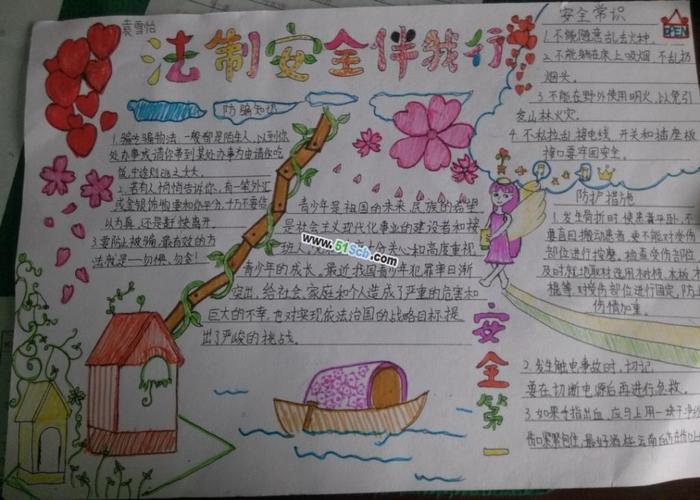 袁雪怡
法制安全伴我行
防骗知识
1.骗子骗物法:一般都是陌生人,以到你
处办事或请你带到某处办事为由请你吃
饭,中途则溜之大夫。
2.若有人悄悄告诉你,有一笔外汇
或金银饰物要和你平分,千万不要信
以为真,还是赶快离开
3.要防止被骗,最有效的方
法就是一勿惧、勿贪!
青少年是祖国的未来,民族的希望
是社会主义现代化事业的建设者和接
班人,关心和高度重视
青少年的成长。最近我国青少年犯罪率日渐
突出,给社会、家庭和个人造成了严重的危害和
巨大的不幸,也对实现依法治国的战略目标,提
出了严峻的挑战。
www.51Scb.com
安全第一
安全常识
OPEN
1.不能随意乱丢火种。
2.不能躺在床上吸烟,不乱扔
烟头。
3.不能在野外使用明火,以免引
发山林火灾。
4.不私拉乱接电线,开关和插座极
接口要牢固安全。
防护措施
1.发生骨折时,使患者平卧,不
要盲目搬动患者,更不能对受伤
部位进行按摩,检查受伤部位
及时就地取材选用木板、木
棍等,对受伤部位进行固定,防止
伤情加重。
2.发生触电事故时,切记
要在切断电源后再进行急救。
3.如果手指出血,应马上用一块干净
伤口紧紧包住,最好洒些云南白药在伤口上